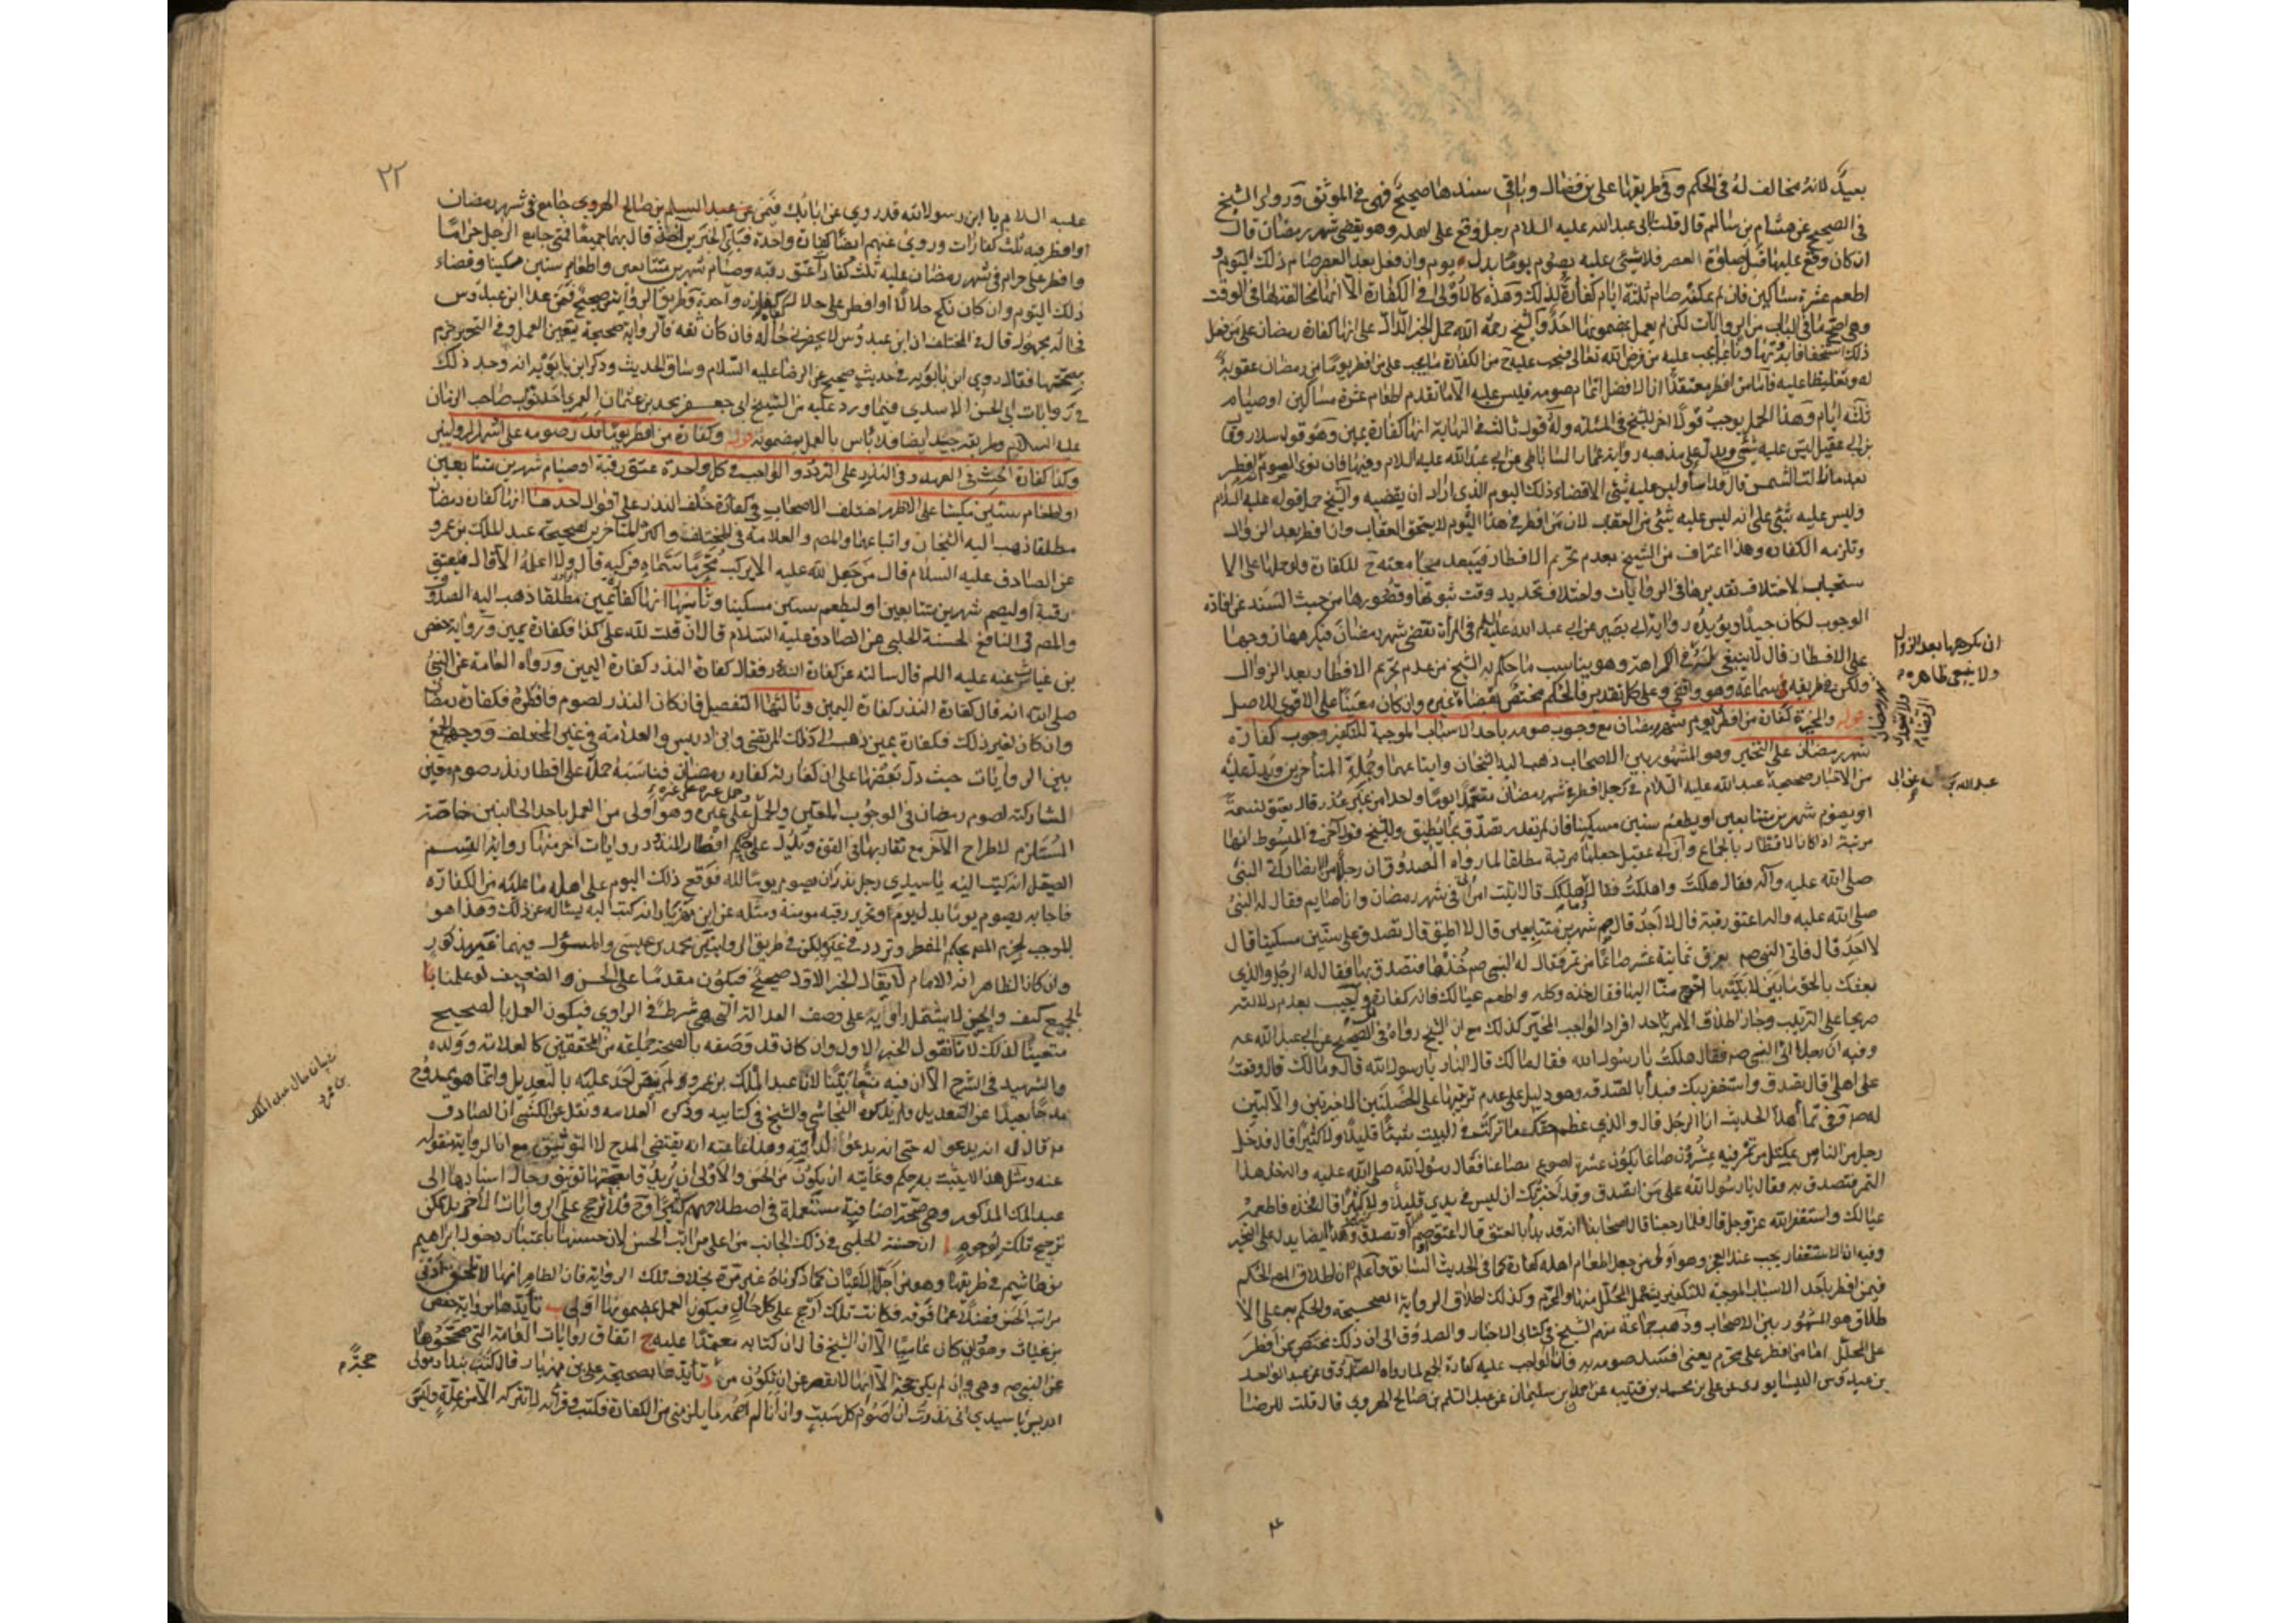 بعيد لانه مخالف له في الحكم وفي طريقها علي بن فضال وباقي سندها صحيح فهي في الموثق وروى الشيخ
في الصحيح عن هشام بن سالم قال قلت لابي عبد الله عليه السلام رجل وقع على اهله وهو يقضي شهر رمضان قال
ان كان وقع عليها قبل صلوة العصر فلا شئ عليه يصوم يوما بدل يوم وان فعل بعد العصر صام ذلك اليوم و
اطعم عشرة مساكين فان لم يمكنه صام ثلثة ايام كفارة لذلك وهذه كالاولى في الكفارة الا انها تخالفها في الوقت
وهي اصح ما في الباب من الروايات لكن لم يعمل بمضمونها احد والشيخ رحمه الله حمل الخبر الدال على انها كفارة رمضان على من فعل
ذلك استخفافا وتهاونا بما يجب عليه من فرض الله تعالى فيجب عليه ح من الكفارة ما يجب على من افطر يوما من رمضان عقوبة
له وتغليظا عليه فاما من افطر معتقدا ان الافضل اتمام صومه فليس عليه الا ما تقدم اطعام عشرة مساكين او صيام
ثلثة ايام وهذا الحمل يوجب قولا اخر للشيخ في المسئلة وله قول ثالث في النهاية انها كفارة يمين وهو قول سلار وقال
بن ابي عقيل ليس عليه شئ ويدل على مذهبه رواية عمار الساباطي عن ابي عبد الله عليه السلام وفيها فان نوى الصوم ثم افطر
بعد ما زالت الشمس قال قد اساء وليس عليه شئ الا قضاء ذلك اليوم الذي اراد ان يقضيه والشيخ حمل قوله عليه السلام
وليس عليه شئ على انه ليس عليه شئ من العقاب لان من افطر في هذا اليوم لا يستحق العقاب وان افطر بعد الزوال
وتلزمه الكفارة وهذا اعتراف من الشيخ بعدم تحريم الافطار فيبعد مجامعته ح للكفارة ولو حملها على الا
ستحباب لاختلاف تقديرها في الروايات واختلاف تحديد وقت ثبوتها وقصورها من حيث السند عن افادة
الوجوب لكان جيدا ويؤيده رواية ابي بصير عن ابي عبد الله عليه السلم في المرأة تقضي شهر رمضان فيكرهها زوجها
على الافطار قال لا ينبغي وهو يناسب ما حكم به الشيخ من عدم تحريم الافطار بعد الزوال
ولكن في طريقه سماعة وهو واقفي وعلى كل تقدير فالحكم مختص بقضاء غيره وان كان معينا على الاقوى للاصل
قوله والمخيرة كفارة من افطر يوم شهر رمضان مع وجوب صومه باحد الاسباب الموجبة للتكفير وجوب كفارة
شهر رمضان على التخيير وهو المشهور بين الاصحاب ذهب اليه الشيخان واتباعهما وجملة المتأخرين ويدل عليه
من الاخبار صحيحة عبد الله عليه السلام في رجل افطر في شهر رمضان متعمدا يوما واحدا من غير عذر قال يعتق نسمة
او يصوم شهرين متتابعين او يطعم ستين مسكينا فان لم يقدر تصدق بما يطيق وللشيخ قول اخر في المبسوط انها
مرتبة اذا كان الافطار بالجماع وابن ابي عقيل جعلها مرتبة مطلقا لما رواه الصدوق ان رجلا من الانصار اتى النبي
صلى الله عليه وآله فقال هلكت واهلكت فقال ما اهلكك قال اتيت امرأتي في شهر رمضان وانا صايم فقال له النبي
صلى الله عليه واله اعتق رقبة قال لا اجد قال صم شهرين متتابعين قال لا اطيق قال تصدق على ستين مسكينا قال
لا اجد قال فاتى النبي صم بعرق ثمانية عشر صاعا من تمر فقال له النبي صم خذها فتصدق بها فقال له الرجل والذي
بعثك بالحق ما بين لابتيها احوج منا اليها فقال خذه وكله واطعم عيالك فانه كفارة لك ويجيب بعدم دلالته
صريحا على الترتيب وجاز اطلاق الامر باحد افراد الواجب المخير كذلك مع ان الشيخ رواه في الصحيح عن ابي عبد الله عه
وفيه ان رجلا اتى النبي صه فقال هلكت يا رسول الله فقال مالك قال النار يا رسول الله قال ومالك قال وقعت
على اهلي قال تصدق واستغفر ربك فبدأ بالصدقة وهو دليل على عدم ترتيبها على الخصلتين الاخرتين والاليتين
له صه وفي تمام هذا الحديث ان الرجل قال والذي عظم حقك ما تركت في البيت شيئا قليلا ولا كثيرا قال فدخل
رجل من الناس بمكتل من تمر فيه عشرون صاعا يكون عشرة اصوع بصاعنا فقال رسول الله صلى الله عليه واله خذ هذا
التمر فتصدق به فقال يا رسول الله على من اتصدق وقد اخبرتك ان ليس في بيتي قليل ولا كثير قال فخذه فاطعمه
عيالك واستغفر الله عز وجل قال فلما رجعنا قال اصحابنا انه قد بدأ بالعتق قال اعتق او صم او تصدق وهذا ايضا يدل على التخيير
وفيه ان الاستغفار يجب عند العجز وهو اولى من جعل اطعام اهله كفارة كما في الحديث السابق واعلم ان اطلاق المص الحكم
فيمن افطر باحد الاسباب الموجبة للتكفير يشمل المحلل منها والمحرم وكذلك اطلاق الرواية الصحيحة والحكم به على الا
طلاق هو المشهور بين الاصحاب وذهب جماعة منهم الشيخ في كتابي الاخبار والصدوق الى ان ذلك مختص بمن افطر
على المحلل اما من افطر على محرم يعني افسد صومه به فان الواجب عليه كفارة الجمع لما رواه الصدوق عن عبد الواحد
بن عبدوس النيسابوري عن علي بن محمد بن قتيبة عن حمدان بن سليمان عن عبد السلم بن صالح الهروي قال قلت للرضا
ان يكرهها بعد الزوال
ولا ينبغي ظاهره
عبد الله بن عن ابي
٢٢
عليه السلام يا ابن رسول الله قد روي عن ابائك فيمن جامع في شهر رمضان
او افطر فيه ثلث كفارات وروي عنهم ايضا كفارة واحدة فباي الخبرين آخذ قال بهما جميعا فمتى جامع الرجل حراما
وافطر على حرام في شهر رمضان عليه ثلث كفارات عتق رقبة وصيام شهرين متتابعين واطعام ستين مسكينا وقضاء
ذلك اليوم وان كان نكح حلالا او افطر على حلال كفارة واحدة وطريق الرواية صحيح فيمن عدا ابن عبدوس
فحاله مجهول قال في المختلف ان ابن عبدوس لا يحضرني حاله فان كان ثقة فالرواية صحيحة يتعين العمل وفي التحرير جزم
بصحتها فقال روى ابن بابويه في حديث صحيح عن الرضا عليه السلام وساق الحديث وذكر ابن بابويه انه وجد ذلك
في روايات ابي الحسن الاسدي فيما ورد عليه من الشيخ ابي جعفر محمد بن عثمان العمري احد نواب صاحب الزمان
عليه السلام وطريقه جيد ايضا فلا بأس بالعمل بمضمونه قوله وكفارة من افطر يوما نذر صومه على اشهر الروايتين
وكذا كفارة الحنث في العهد وفي النذر على التردد والواجب في كل واحدة عتق رقبة او صيام شهرين متتابعين
او اطعام ستين مسكينا على الاظهر اختلف الاصحاب في كفارة خلف النذر على اقوال احدها انها كفارة رمضان
مطلقا ذهب اليه الشيخان واتباعهما والمص والعلامة في المختلف واكثر المتاخرين لصحيحة عبد الملك بن عمرو
عن الصادق عليه السلام قال من جعل لله عليه الا يركب محرما سماه فركبه قال ولا اعلمه الا قال فليعتق
رقبة او ليصم شهرين متتابعين او ليطعم ستين مسكينا وثانيها انها كفارة يمين مطلقا ذهب اليه الصدوق
والمص في النافع لحسنة الحلبي عن الصادق عليه السلام قال ان قلت لله علي كذا فكفارة يمين ورواية حفص
بن غياث عنه عليه السلم قال سالته عن كفارة النذر فقال كفارة النذر كفارة اليمين ورواه العامة عن النبي
صلى الله انه قال كفارة النذر كفارة اليمين وثالثها التفصيل فان كان النذر لصوم فافطره فكفارة رمضان
وان كان لغير ذلك فكفارة يمين ذهب الى ذلك المرتضى وابن ادريس والعلامة في غير المختلف ووجه الجمع
بين الروايات حيث دل بعضها على ان كفارته كفارة رمضان فناسبه حملها على افطار نذر صوم معين
لمشاركته لصوم رمضان في الوجوب المعين والحمل على غيره وهو اولى من العمل باحد الجانبين خاصة
المستلزم لاطراح الآخر مع تقاربهما في القوة ويدل على حكم افطار المنذور روايات اخر منها رواية القسم
الصيقل انه كتب اليه يا سيدي رجل نذر ان يصوم يوما لله فوقع ذلك اليوم على اهله ما عليه من الكفارة
فاجابه يصوم يوما بدل يوم وتحرير رقبة مومنة ومثله عن ابن مهزيار انه كتب اليه يساله عن ذلك وهذا هو
الموجب لجزم المص بحكم المفطر وتردد في غيره لكن في طريق الروايتين محمد بن عيسى والمسؤل فيهما غير مذكور
وان كان الظاهر انه الامام لا يقال الخبر الاول صحيح فيكون مقدما على الحسن والضعيف لو علمنا با
لجميع كيف والحسن لا يشتمل راويه على وصف العدالة التي هي شرط في الراوي فيكون العمل بالصحيح
متعينا لذلك لانا نقول الخبر الاول وان كان قد وصفه بالصحة جماعة من المحققين كالعلامة وولده
والشهيد في الشرح الا ان فيه منعا بينا لان عبد الملك بن عمرو لم ينص احد عليه بالتعديل وانما هو ممدوح
مدحا بعيدا عن التعديل ولم يذكره النجاشي والشيخ في كتابيه وذكره العلامة ونقل عن الكشي ان الصادق
عه قال له انه يدعو له حتى انه يدعو لدابته وهذا غايته انه يقتضي المدح لا التوثيق مع ان الرواية منقولة
عنه ومثل هذا لا يثبت به حكم وغايته ان يكون من الحسن والاولى ان يريد بصحتها توثيق رجال اسنادها الى
عبد الملك المذكور وهي صحة اضافية مستعملة في اصطلاحهم كثيرا وح فلا ترجيح على الروايات الاخر بل يمكن
ترجيح تلك لوجوه ا ان حسنة الحلبي في ذلك الجانب من اعلى مراتب الحسن لان حسنها باعتبار دخول ابراهيم
بن هاشم في طريقها وهو من اجلاء الاعيان كما ذكرناه غير مرة بخلاف تلك الرواية فان الظاهر انها لا تلحق ادنى
مراتب الحسن فضلا عما فوقه فكانت تلك ارجح على كل حال فيكون العمل بمضمونها اولى ب تأيدها برواية حفص
بن غياث وهو وان كان عاميا الا ان الشيخ قال ان كتابه معتمد عليه ج اتفاق روايات العامة التي صححوها
عن النبي صه وهي وان لم يكن حجة الا انها لا تقصر عن ان تكون من د تأيدها بصحيحة علي بن مهزيار قال كتب بندار مولى
ادريس يا سيدي اني نذرت ان اصوم كل سبت وان انا لم اصمه ما يلزمني من الكفارة فكتب وقرأته لا تتركه الا من علة وليس
بيان حال عبد الملك
بن عمرو